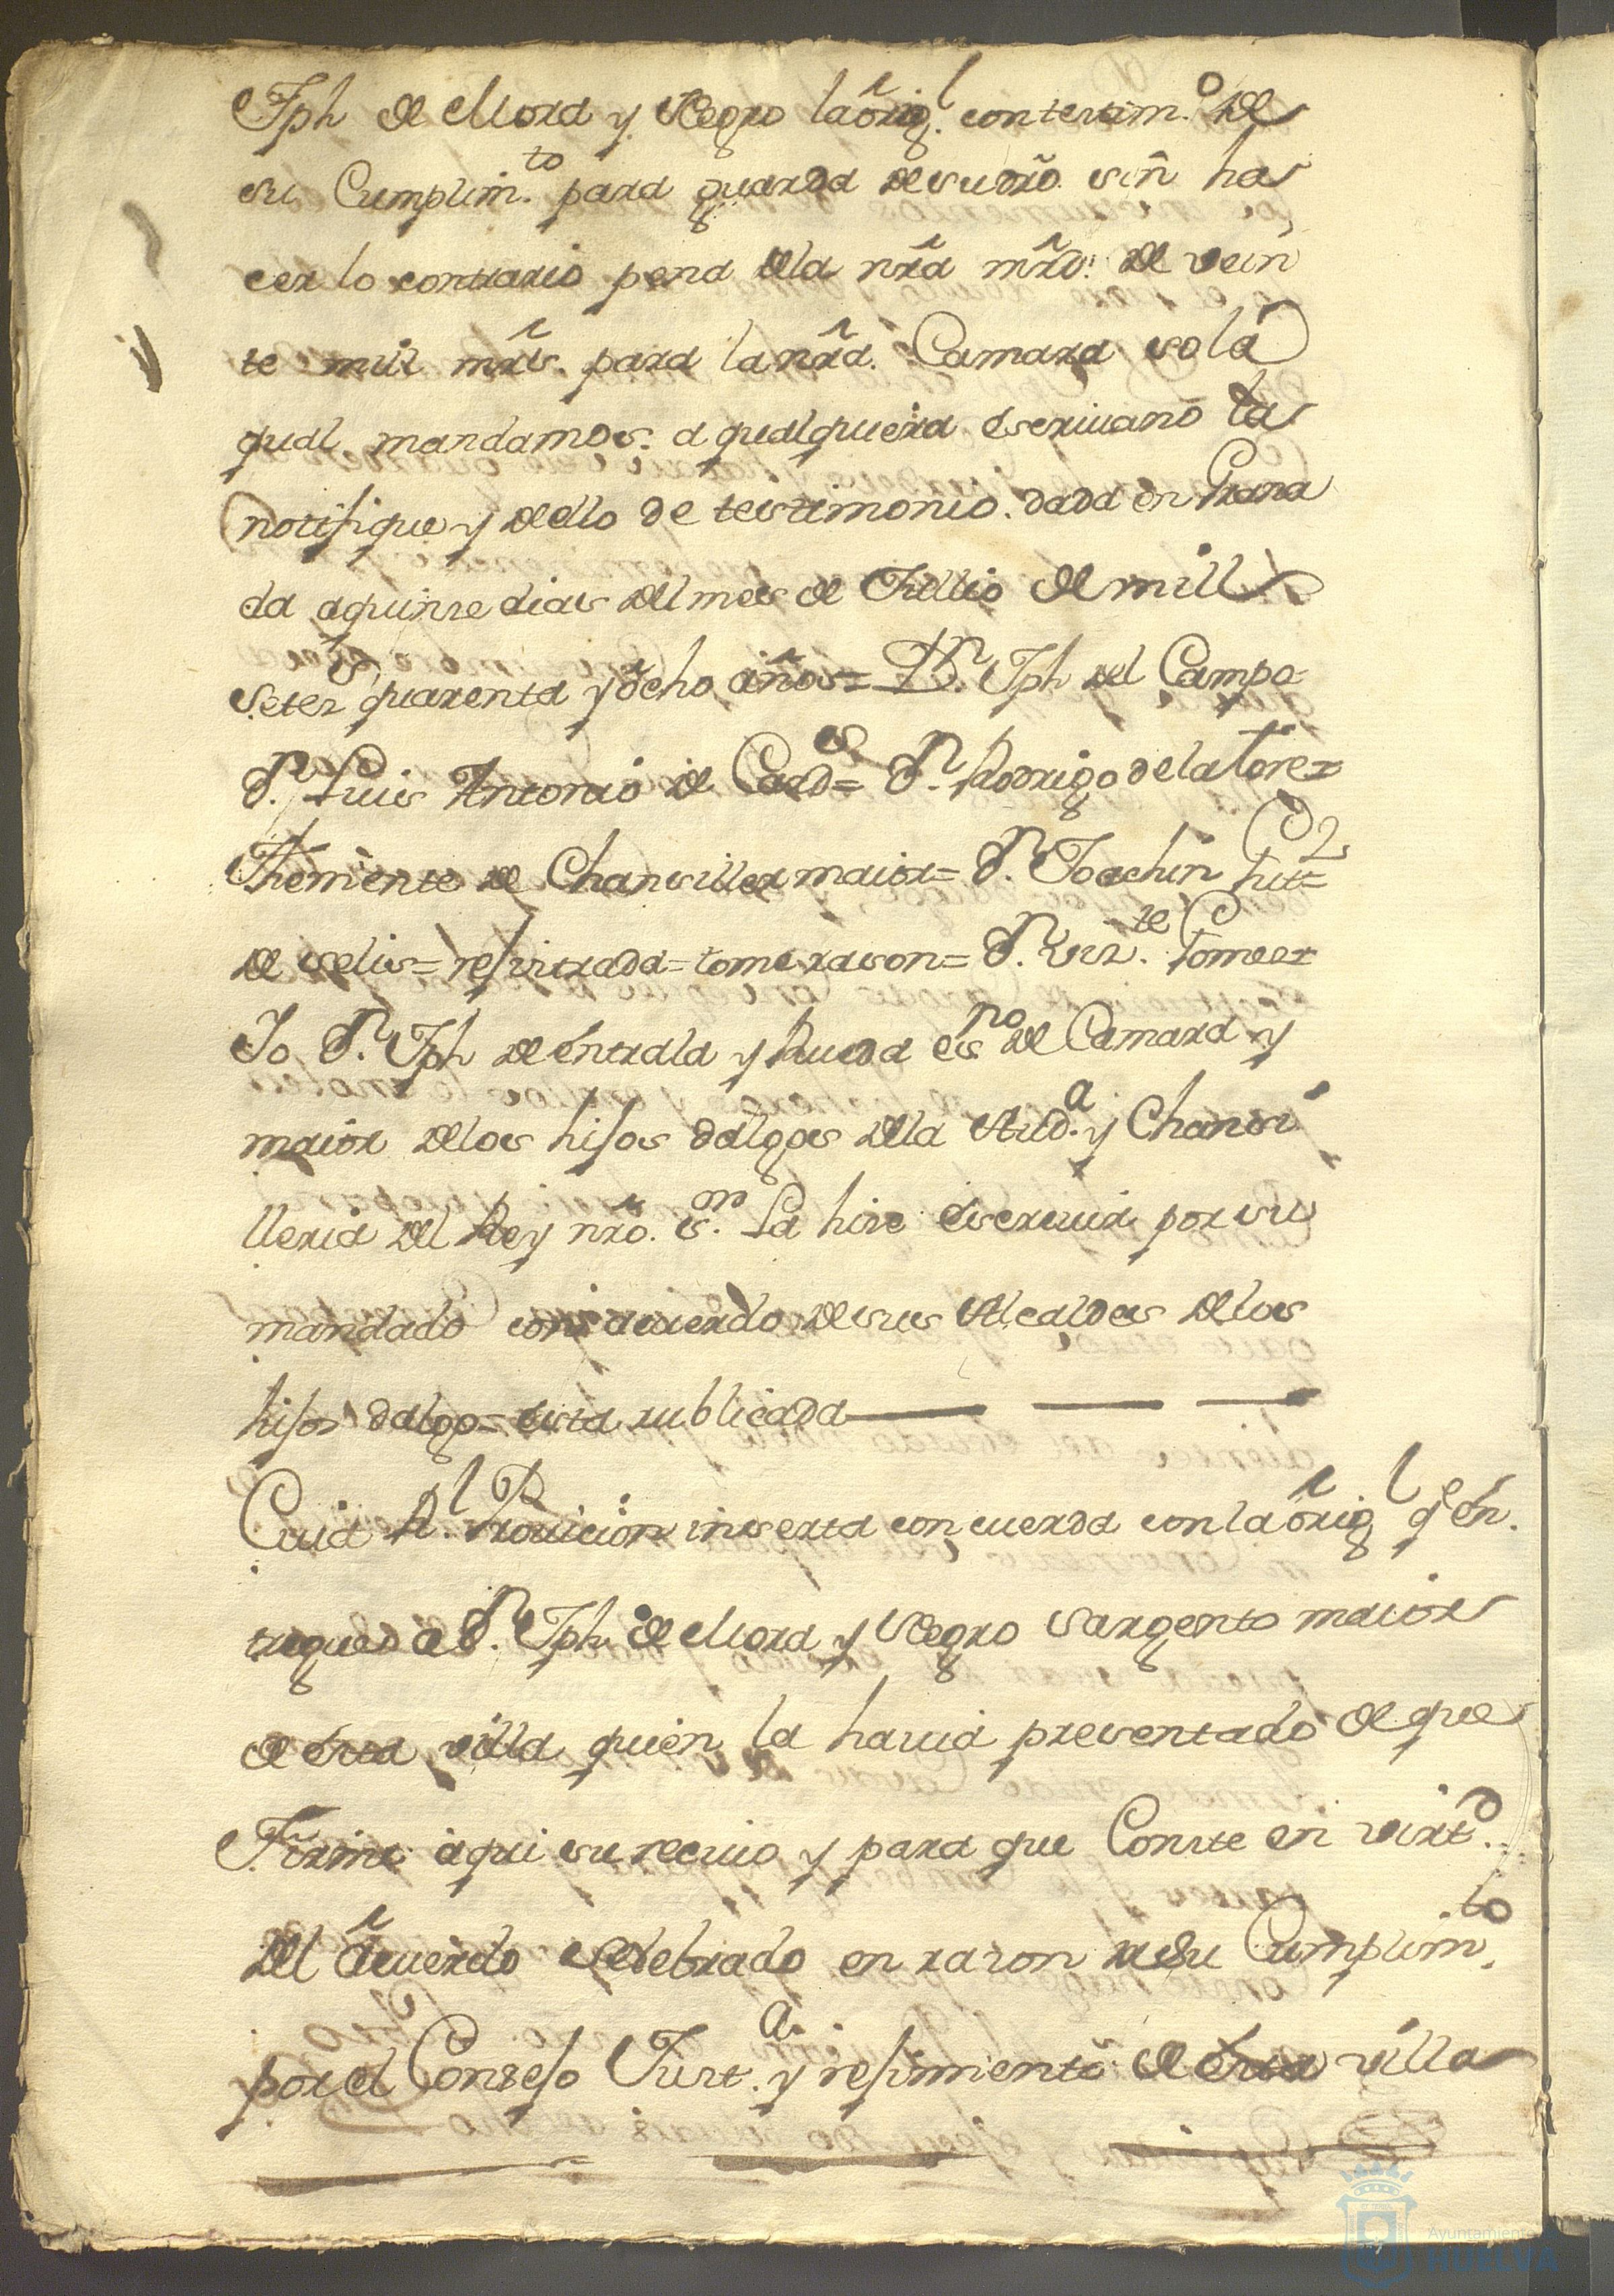 Jph de Mora y Negro la orig.l con testim.o de
su Cumplim.to para guarda de su dro. sin ha
cer lo contrario pena de la nra mrd. de vein
te mill mrs. para la nra. Camara so la
qual mandamos. a qualquiera escriuano la
notifique y dello de testimonio. dada en Grana
da a quinse dias del mes de Jullio de mill
setez.s quarenta y ocho años = D.n Jph del Campo
D.n Luis Antonio de Card.s = D.n Rodrigo de la Torre =
Theniente de Chansiller maior = D.n Joachin
de Solis = rejistrada = tome rason = D.n Viz.te Tomer =
Yo D.n Jph de entrala y Rueda es.no de Camara y
maior de los hijos dalgos de la Aud.a y Chansi
lleria del Rey nro. s.or La hise escriuir por su
mandado con acuerdo de sus Alcaldes de los
hijos dalgo = esta rublicada
Cuia R.l Prouicion inserta concuerda con la orig.l q.e en
tregue a D.n Jph de Mora y Negro Sargento maior
de esta villa quien la hauia presentado de que
Firmo aqui su reciuo y para que Conste en virt.d
del acuerdo selebrado en razon de su Cumplim.to
por el Consejo Just.a y rejimiento de esta villa
Ayuntamiento
HUELVA